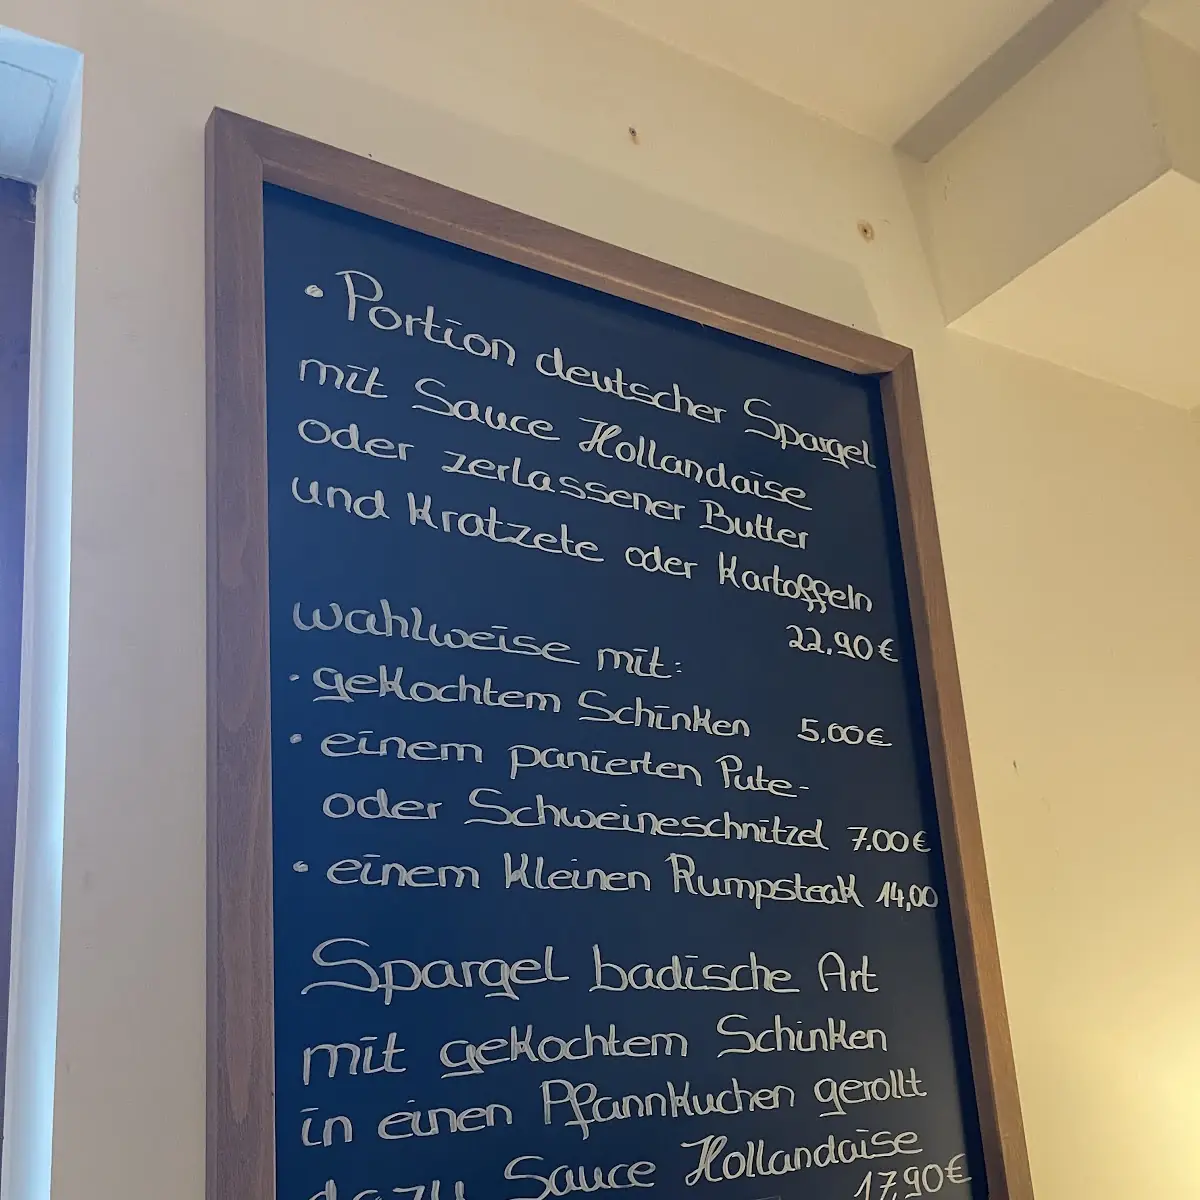 • Portion deutscher Spargel
mit Sauce Hollandaise
oder zerlassener Butter
und Kratzete oder Kartoffeln
22.90 €
wahlweise mit:
• gekochtem Schinken 5.00 €
• einem panierten Pute-
oder Schweineschnitzel 7.00 €
• einem kleinen Rumpsteak 14,00
Spargel badische Art
mit gekochtem Schinken
in einen Pfannkuchen gerollt
dazu Sauce Hollandaise
17,90 €